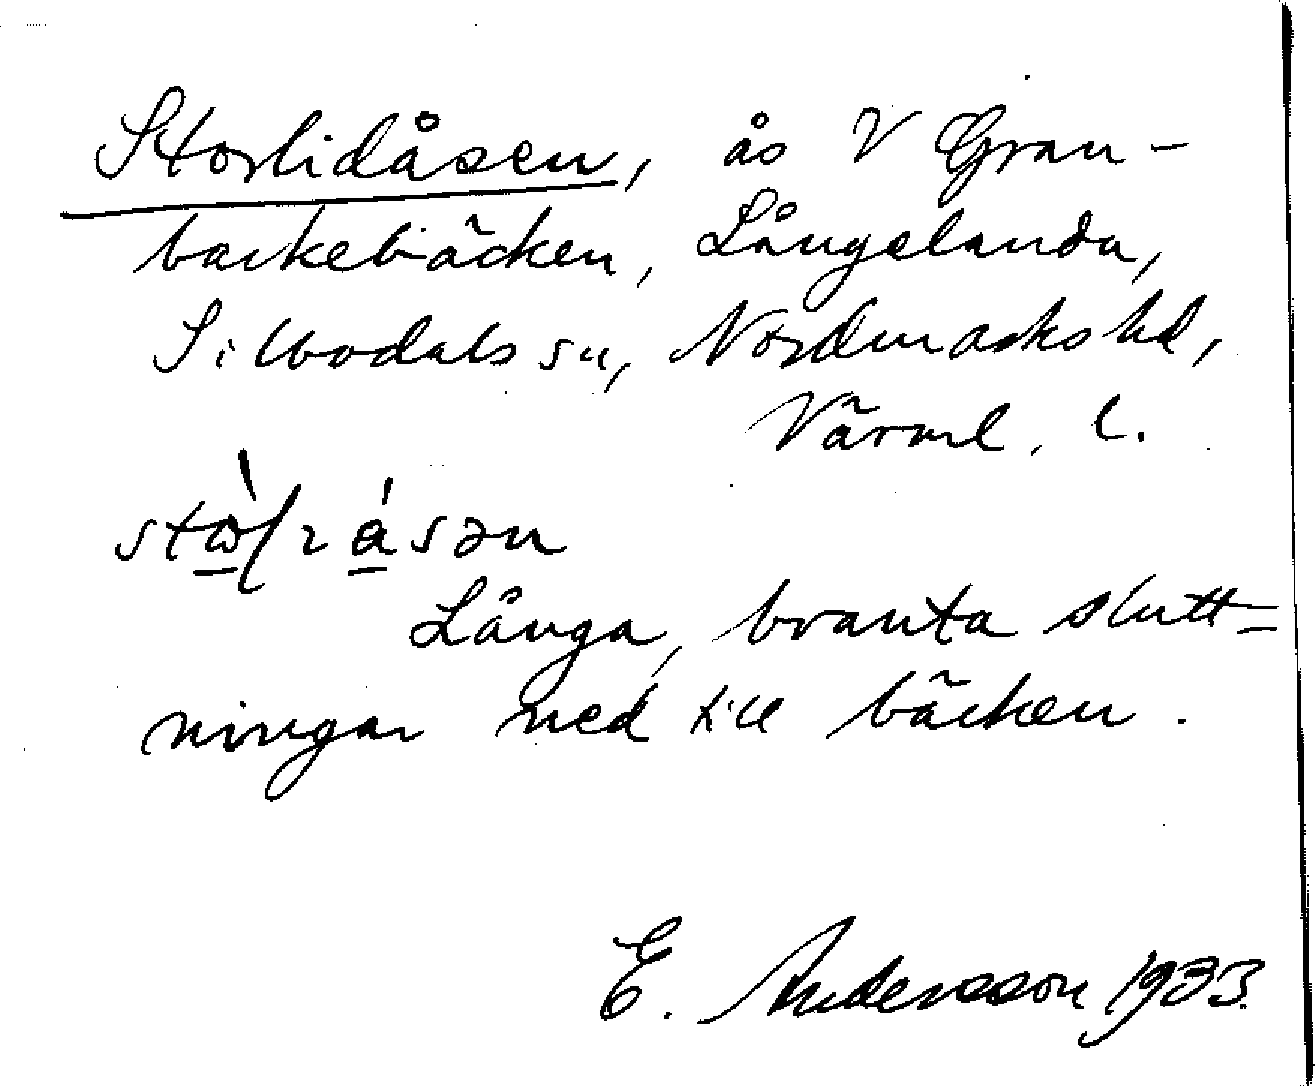 Storlidåsen, ås V Gran-
backebäcken, Långelanda,
Silbodals sn, Nordmarks hd,
Värml. l.
Långa, branta slutt=
ningar ned till bäcken.
E. Andersson 1933.